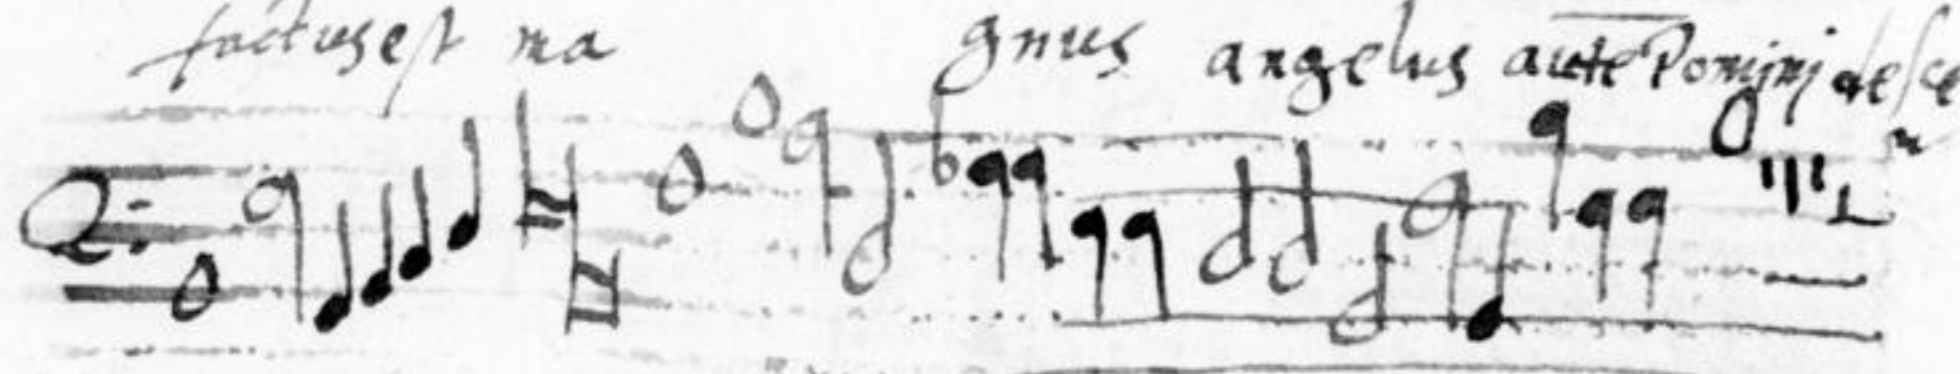 factus est ma gnus angelus aute Domini desce